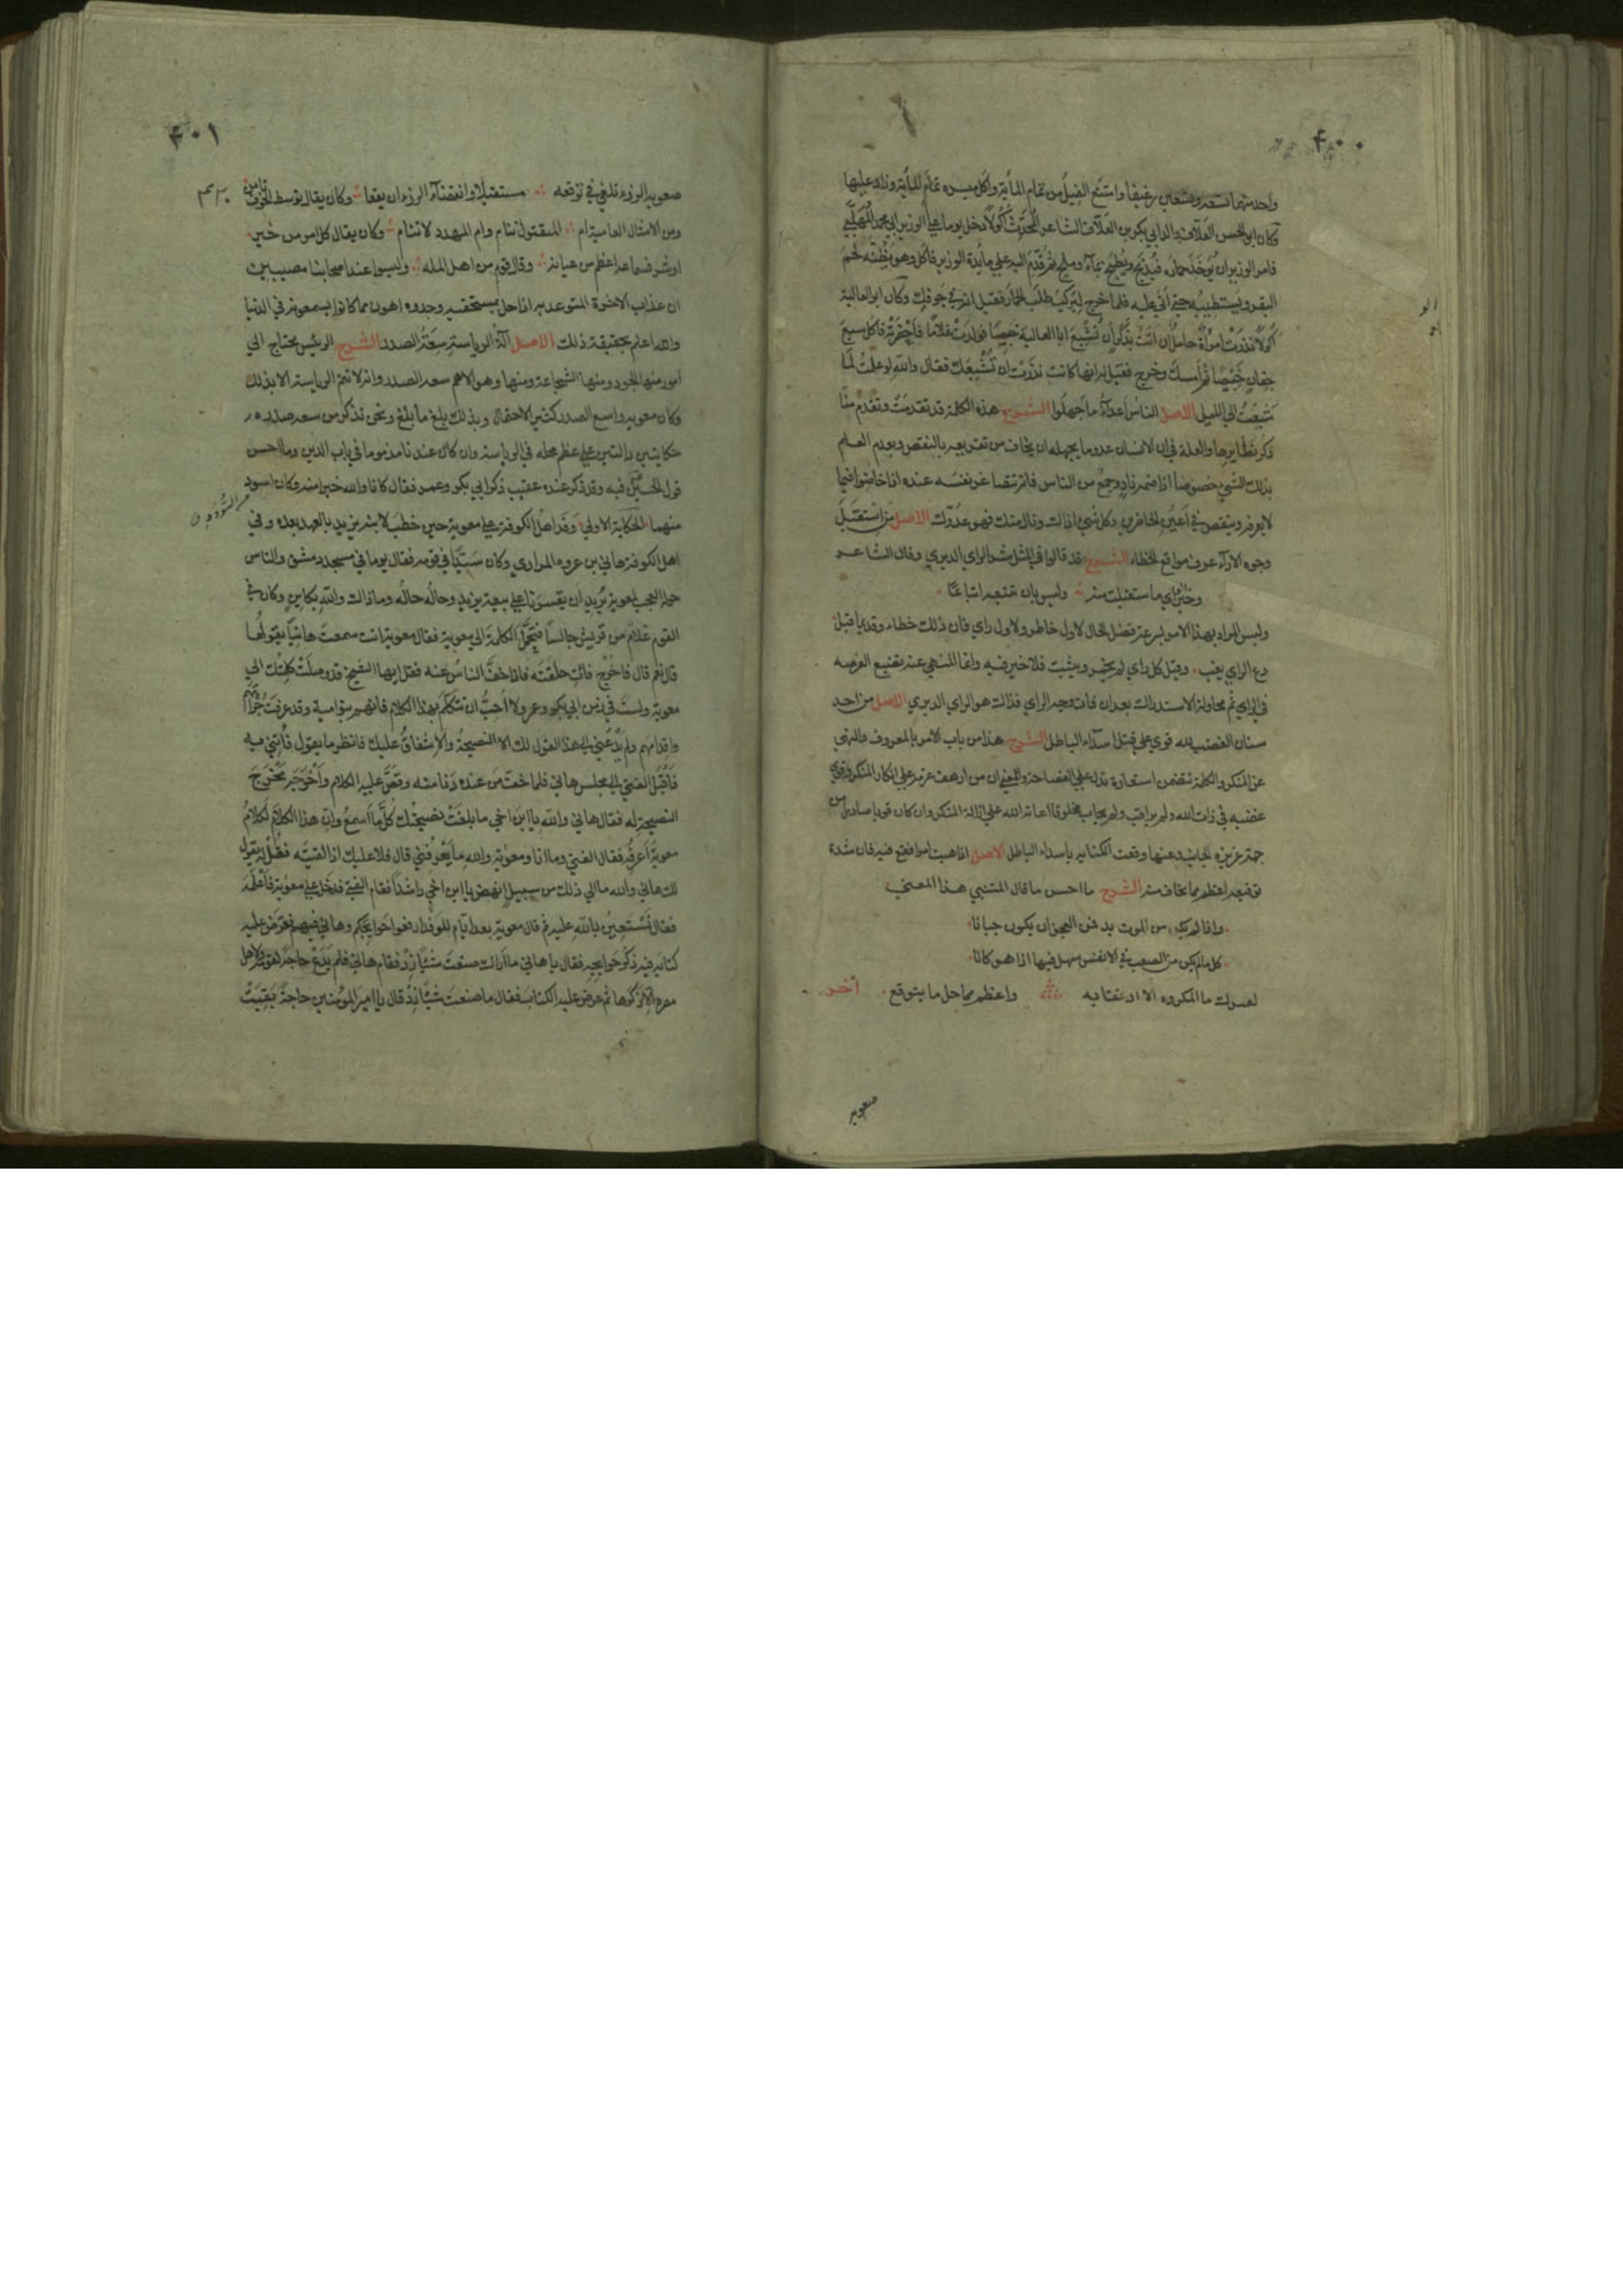 ۴۰۰
واحد منهما تسعة وتسعين رغيفا وامتنع الفيل من تمام المأية واكل ميسرة تمام المأية وزاد عليها
وكان ابو الحسن العلاف والد ابي بكر بن العلاف الشاعر المحدث اكولا دخل يوما على الوزير ابي محمد المهلبي
فامر الوزير ان يؤخذ حماره فيذبح ويطبخ بماء وملح ثم قدم اليه على مايدة الوزير فاكل وهو يظنه لحم
البقر ويستطيبه حتى اتى عليه فلما خرج ليركب طلب الحمار فقيل له في جوفك وكان ابو العالية
اكولا نذرت امرأة حامل ان اتت بذكر ان تشبع ابا العالية خبيصا فولدت غلاما فاحضرته فاكل سبع
جفان خبيصا ثم امسك وخرج فقيل له انها كانت نذرت ان تشبعك فقال والله لو علمت لما
شبعت الى الليل الاصل الناس اعداء ما جهلوا الشرح هذه الكلمة قد تقدمت وتقدم منا
ذكر نظايرها والعلة في ان الانسان عدو ما يجهله ان يخاف من تقريعه بالنقص وبعدم العلم
بذلك الشيء خصوصا اذا ضمه ناد وجمع من الناس فانه تتصاغر نفسه عنده اذا خاضوا فيما
لا يعرفه وينقص في اعين الحاضرين وكل شيء اذاك ونال منك فهو عدوك الاصل من استقبل
وجوه الآراء عرف مواقع الخطاء الشرح قد قالوا في المثل شر الراي الدبري وقال الشاعر
وخير الراي ما استقبلت منه وليس بان تتبعه اتباعا
وليس المراد بهذا الامر سرعة فصل الحال لاول خاطر ولاول راي فان ذلك خطاء وقديما قيل
دع الراي يغب وقيل كل راي لم يخمر ويبيت فلا خير فيه وانما المنهي عنه تضييع الفرصة
في الراي ثم محاولة الاستدراك بعد ان فات وجه الراي فذاك هو الراي الدبري الاصل من احد
سنان الغضب لله قوي على قتل اسداء الباطل الشرح هذا من باب الامر بالمعروف والنهي
عن المنكر والكلمة تتضمن استعارة تدل على الفصاحة والمعنى ان من ارهف عزمه على انكار المنكر وقوي
غضبه في ذات الله ولم يراقب ولم يحاب مخلوقا اعانه الله على ازالة المنكر وان كان قويا صادرا من
جهة عزيزة الجانب وعنها وقعت الكناية باسداء الباطل الاصل اذا هبت امرا فقع فيه فان شدة
توقيه اعظم مما تخاف منه الشرح ما احسن ما قال المتنبي هذا المعنى
واذا لم يكن من الموت بد فمن العجز ان يكون جبانا
كل ما لم يكن من الصعب في الانفس سهل فيها اذا هو كانا
لعمرك ما المكروه الا ارتقابه واعظم مما حل ما يتوقع آخر
صعوبه
۴۰۱
صعوبة الرزء تلقى في توقعه مستقبلا وانقضاء الرزء ان يقعا وكان يقال توسط الخوف تامن
ومن الامثال العامية ام المقتول تنام وام المهدد لا تنام وكان يقال كل امر من خير
او شر فسماعه اعظم من عيانه وقال قوم من اهل الملة وليسوا عند اصحابنا مصيبين
ان عذاب الاخرة المتوعد به اذا حل بمستحقيه وجدوه اهون مما كانوا يسمعونه في الدنيا
والله اعلم بحقيقة ذلك الاصل آلة الرياسة سعة الصدر الشرح الرئيس يحتاج الى
امور منها الجود ومنها الشجاعة ومنها وهو الاهم سعة الصدر وانه لا تتم الرياسة الا بذلك
وكان معوية واسع الصدر كثير الاحتمال وبذلك بلغ ما بلغ ونحن نذكر من سعة صدره
حكايتين دالتين على عظم محله في الرياسة وان كان عندنا مذموما في باب الدين وما احسن
قول الحسن فيه وقد ذكر عنده عقيب ذكر ابي بكر وعمر فقال كانا والله خيرا منه وكان اسود
منهما الحكاية الاولى وفد اهل الكوفة على معوية حين خطب لابنه يزيد بالعهد بعده وفي
اهل الكوفة هاني بن عروة المرادي وكان سيدا في قومه فقال يوما في مسجد دمشق والناس
حوله العجب لمعوية يريد ان يقسرنا على بيعة يزيد وحاله حاله وما ذاك والله بكاين وكان في
القوم غلام من قريش جالسا فتحمل الكلمة الى معوية فقال معوية انت سمعت هانيا يقولها
قال نعم قال فاخرج فات حلقته فاذا خف الناس عنه فقل ايها الشيخ قد وصلت كلمتك الى
معوية ولست في زمن ابي بكر وعمر ولا احب ان تتكلم بهذا الكلام فانهم بنو امية وقد عرفت جرأتهم
واقدامهم ولم يدعني الى هذا القول لك الا النصيحة والاشفاق عليك فانظر ما يقول فأتني به
فاقبل الفتى الى مجلس هاني فلما خف من عنده دنا منه وقص عليه الكلام واخرجه مخرج
النصيحة له فقال هاني والله يا ابن اخي ما بلغت نصيحتك كل ما اسمع وان هذا الكلام لكلام
معوية اعرفه فقال الفتى وما انا ومعوية والله ما يعرفني قال فلا عليك اذا لقيته فقل له يقول
لك هاني والله ما الى ذلك من سبيل انهض يا ابن اخي راشدا فقام الفتى فدخل على معوية فاعلمه
فقال نستعين بالله عليه ثم قال معوية بعد ايام للوفد ارفعوا حوايجكم وهاني فيهم فعرض عليه
كتابه فيه ذكر حوايجه فقال يا هاني ما اراك صنعت شيئا زد فقام هاني فلم يدع حاجة لقومه ولاهل
مصره الا ذكرها ثم عرض عليه الكتاب فقال ما صنعت شيئا زد قال يا امير المؤمنين حاجة بقيت